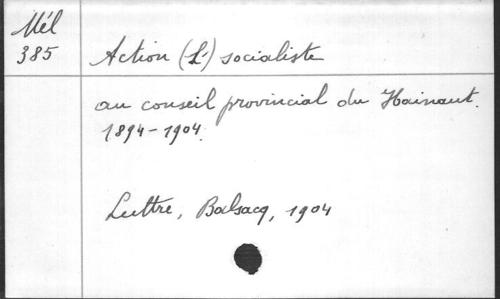 Mél
385
Action (L') socialiste
au conseil provincial du Hainaut.
1894-1904.
Luttre, Balsacq, 1904